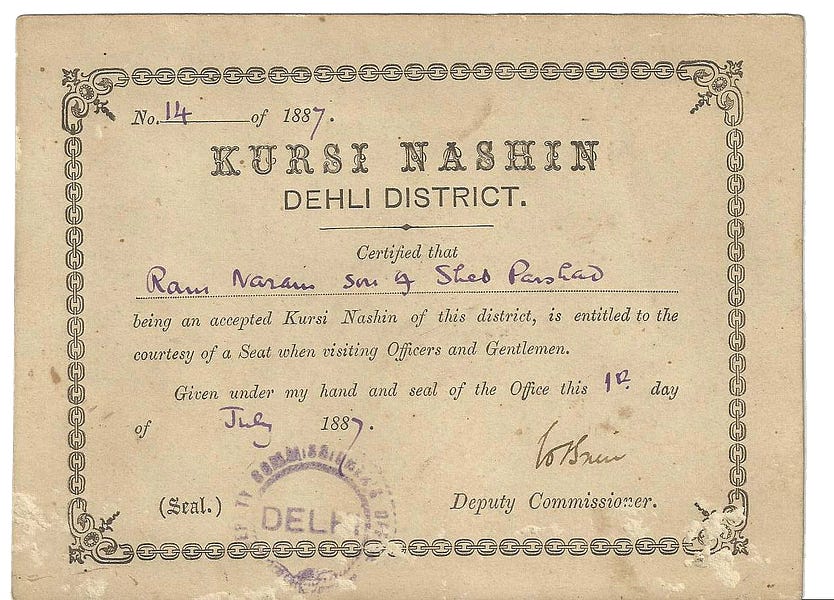 No. 14 of 1887.
KURSI NASHIN
DEHLI DISTRICT.
Certified that
Ram Narain son of Sheo Parshad
being an accepted Kursi Nashin of this district, is entitled to the
courtesy of a Seat when visiting Officers and Gentlemen.
Given under my hand and seal of the Office this 1st day
of July 1887.
COMMISSIONER'S
DELHI
(Seal.)
Deputy Commissioner.